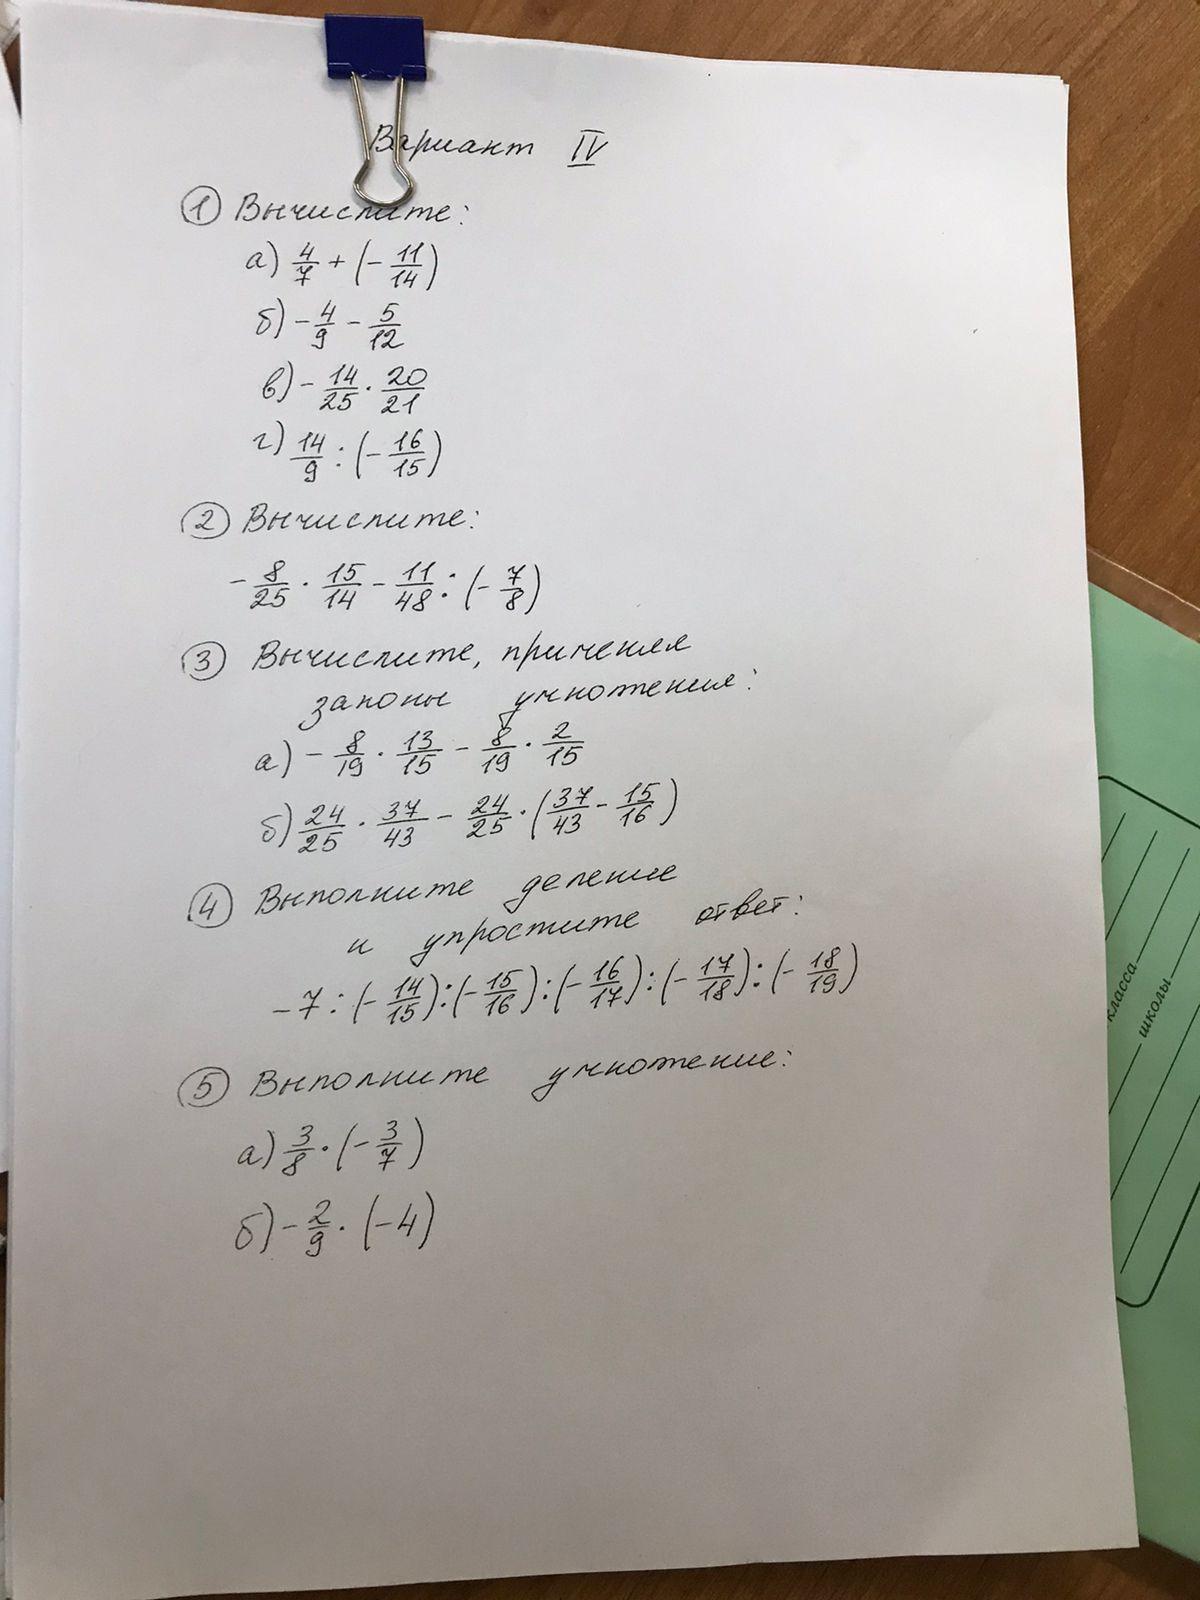 Вариант IV
1 Вычислите:
а) 4/7 + (- 11/14)
б) - 4/9 - 5/12
в) - 14/25 · 20/21
г) 14/9 : (- 16/15)
2 Вычислите:
- 8/25 · 15/14 - 11/48 : (- 7/8)
3 Вычислите, применяя
законы умножения:
а) - 8/19 · 13/15 - 8/19 · 2/15
б) 24/25 · 37/43 - 24/25 · (37/43 - 15/16)
4 Выполните деление
и упростите ответ:
-7 : (- 14/15) : (- 15/16) : (- 16/17) : (- 17/18) : (- 18/19)
5 Выполните умножение:
а) 3/8 · (- 3/7)
б) - 2/9 · (-4)
класса
школы